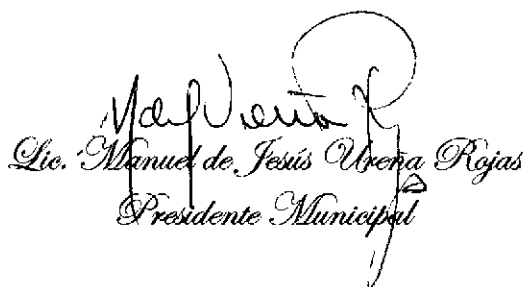 Lic. Manuel de Jesús Ureña Rojas
Presidente Municipal